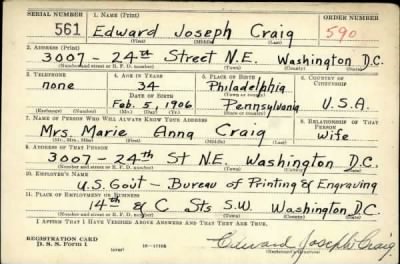 SERIAL NUMBER 1. NAME (Print) ORDER NUMBER
561 Edward Joseph Craig 590
(First) (Middle) (Last)
2. ADDRESS (Print)
3007 - 24th Street N.E. Washington D.C.
(Number and street or R. F. D. number) (Town) (County) (State)
3. TELEPHONE 4. AGE IN YEARS 5. PLACE OF BIRTH 6. COUNTRY OF CITIZENSHIP
none 34 Philadelphia
DATE OF BIRTH (Town or county)
Feb. 5, 1906 Pennsylvania U.S.A.
(Exchange) (Number) (Mo.) (Day) (Yr.) (State or country)
7. NAME OF PERSON WHO WILL ALWAYS KNOW YOUR ADDRESS 8. RELATIONSHIP OF THAT PERSON
Mrs. Marie Anna Craig Wife
(Mr., Mrs., Miss) (First) (Middle) (Last)
9. ADDRESS OF THAT PERSON
3007 - 24th St N.E. Washington D.C.
(Number and street or R. F. D. number) (Town) (County) (State)
10. EMPLOYER'S NAME
U.S. Gov't - Bureau of Printing & Engraving
11. PLACE OF EMPLOYMENT OR BUSINESS
14th & C Sts S.W. Washington D.C.
(Number and street or R. F. D. number) (Town) (County) (State)
I AFFIRM THAT I HAVE VERIFIED ABOVE ANSWERS AND THAT THEY ARE TRUE.
REGISTRATION CARD
D. S. S. Form 1 (over) Edward Joseph Craig
(Registrant's signature)